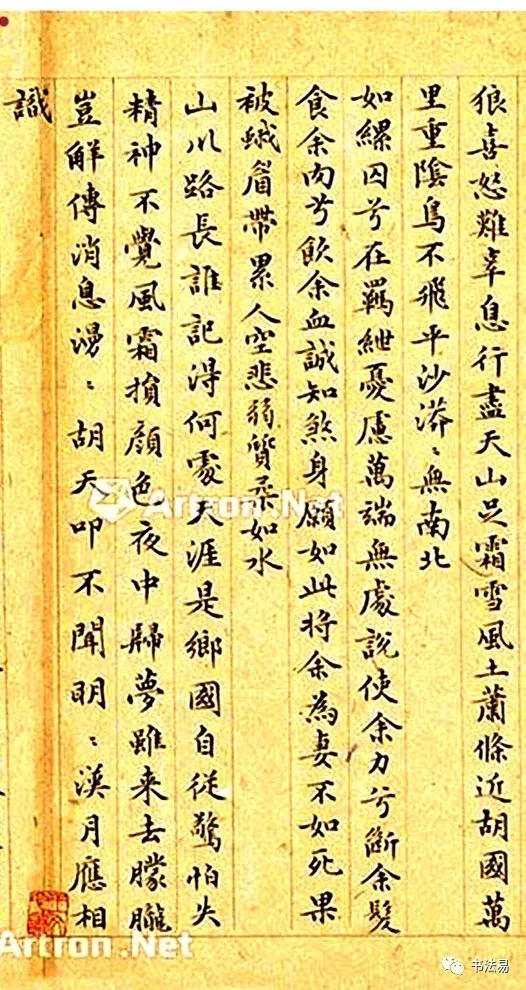 狼喜怒難辜息行盡天山足霜雪風土蕭條近胡國萬
里重陰鳥不飛平沙漭〻無南北
如縲囚兮在羈紲憂慮萬端無處說使余力兮斷余髮
食余肉兮飲余血誠知煞身願如此將余為妻不如死果
被蛾眉帶累人空悲弱質柔如水
山川路長誰記得何處天涯是鄉國自從驚怕失
精神不覺風霜損顏色夜中歸夢雖来去朦朧
豈解傳消息漫〻胡天叩不聞明〻漢月應相
識
Artron.Net
Artron.Net
书法易